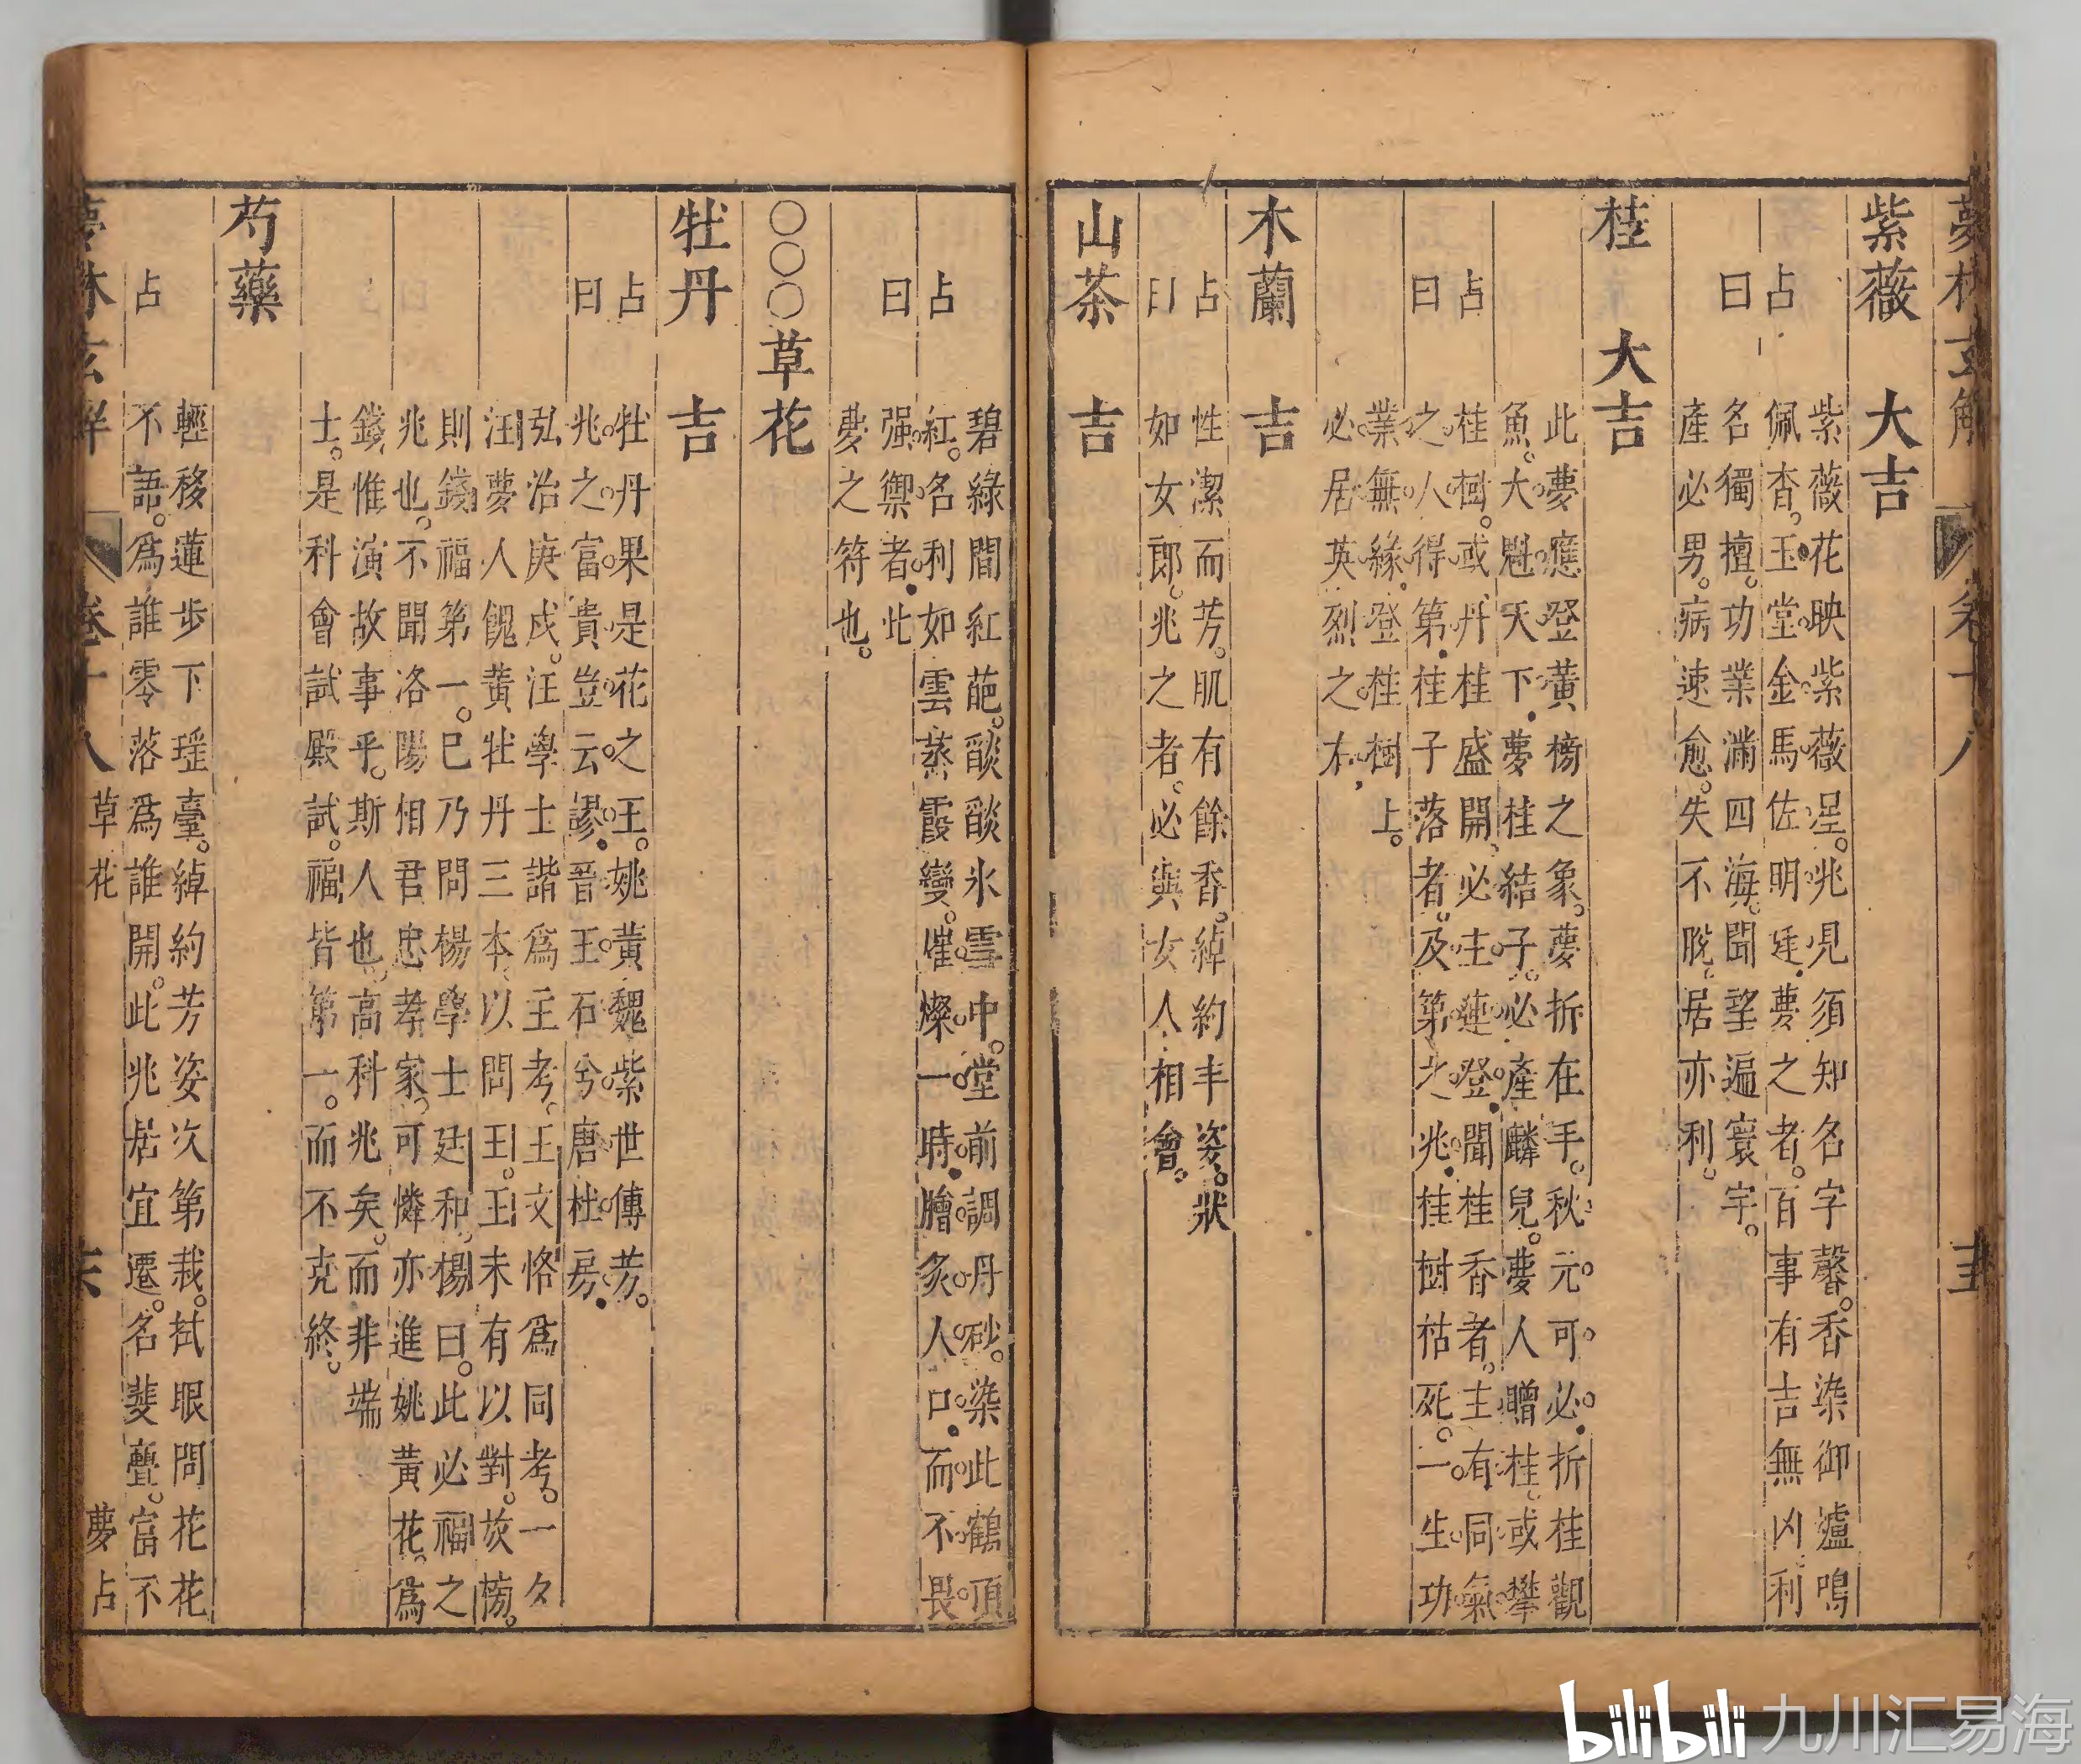 夢林玄解 卷十八
紫薇 大吉
占曰
紫薇花映紫薇星。兆見須知名字馨。香染御爐鳴
佩杳。玉堂金馬佐明廷。夢之者。百事有吉無凶利
名獨擅。功業滿四海。聞望遍寰宇。
產必男。病速愈。失不脫。居亦利。
桂 大吉
此夢應登黃榜之象。夢折在手。秋元可必。折桂觀
魚。大魁天下。夢桂結子。必產麟兒。夢人贈桂。或攀
占曰
桂樹。或丹桂盛開。必主蓮登。聞桂香者。主有同氣
之人得第。桂子落者。及第之兆。桂樹枯死。一生功
業無緣。登桂樹上。
必居英烈之木。
木蘭 吉
占曰
性潔而芳。肌有餘香。綽約丰姿。狀
如女郎。兆之者。必與女人相會。
山茶 吉
碧綠間紅葩。燄燄氷雪中。堂前調丹砂。染此鶴頂
占曰
紅。名利如雲蒸霞變。催燦一時。膾炙人口。而不畏
强禦者。此
夢之符也。
〇〇〇草花
牡丹 吉
占曰
牡丹果是花之王。姚黃魏紫世傳芳。
兆之富貴豈云謬。晉王石兮唐杜房。
弘治庚戌。汪學士諧為主考。王文恪為同考。一夕
汪夢人餽黃牡丹三本、以問王。王未有以對。放榜。
則錢福第一。已乃問楊學士廷和。楊曰。此必福之
兆也。不聞洛陽相君忠孝家。可憐亦進姚黃花。為
錢惟演故事乎。斯人也。高科兆矣。而非端
士。是科會試殿試。福皆第一。而不克終。
芍藥
輕移蓮步下瑤臺。綽約芳姿次第栽。拭眼問花花
占
不語。為誰零落為誰開。此兆居宜遷。名斐亹。富不
夢林玄解 卷十八 草花 夢占